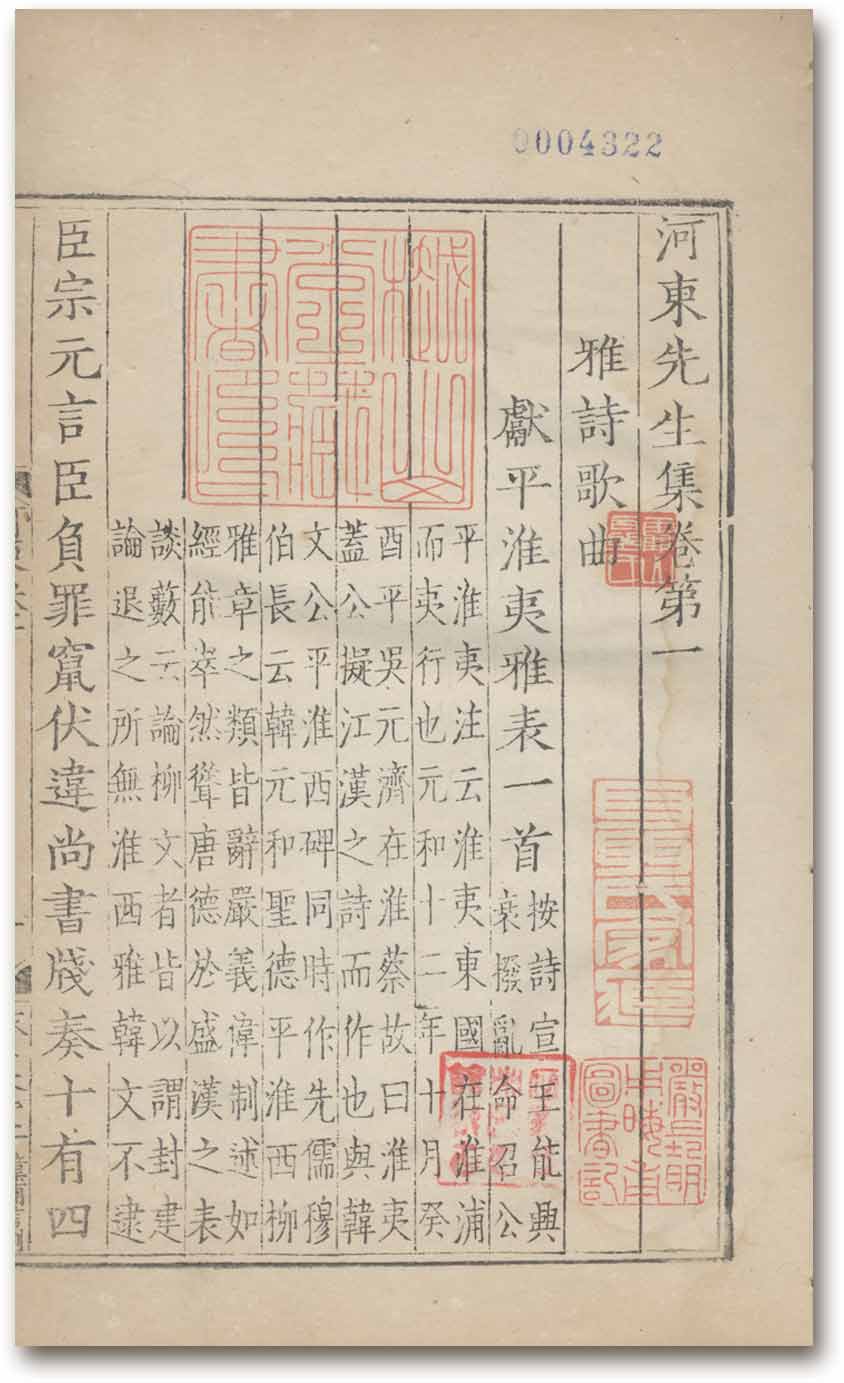 0004322
河東先生集卷第一
雅詩歌曲
獻平淮夷雅表一首
按詩宣王能興
衰撥亂命召公
平淮夷注云淮夷東國在淮浦
而夷行也元和十二年十月癸
酉平吳元濟在淮蔡故曰淮夷
蓋公擬江漢之詩而作也與韓
文公平淮西碑同時作先儒穆
伯長云韓元和聖德平淮西柳
雅章之類皆辭嚴義偉制述如
經能萃然聳唐德於盛漢之表
談藪云論柳文者皆以謂封建
論退之所無淮西雅韓文不逮
臣宗元言臣負罪竄伏違尚書牋奏十有四